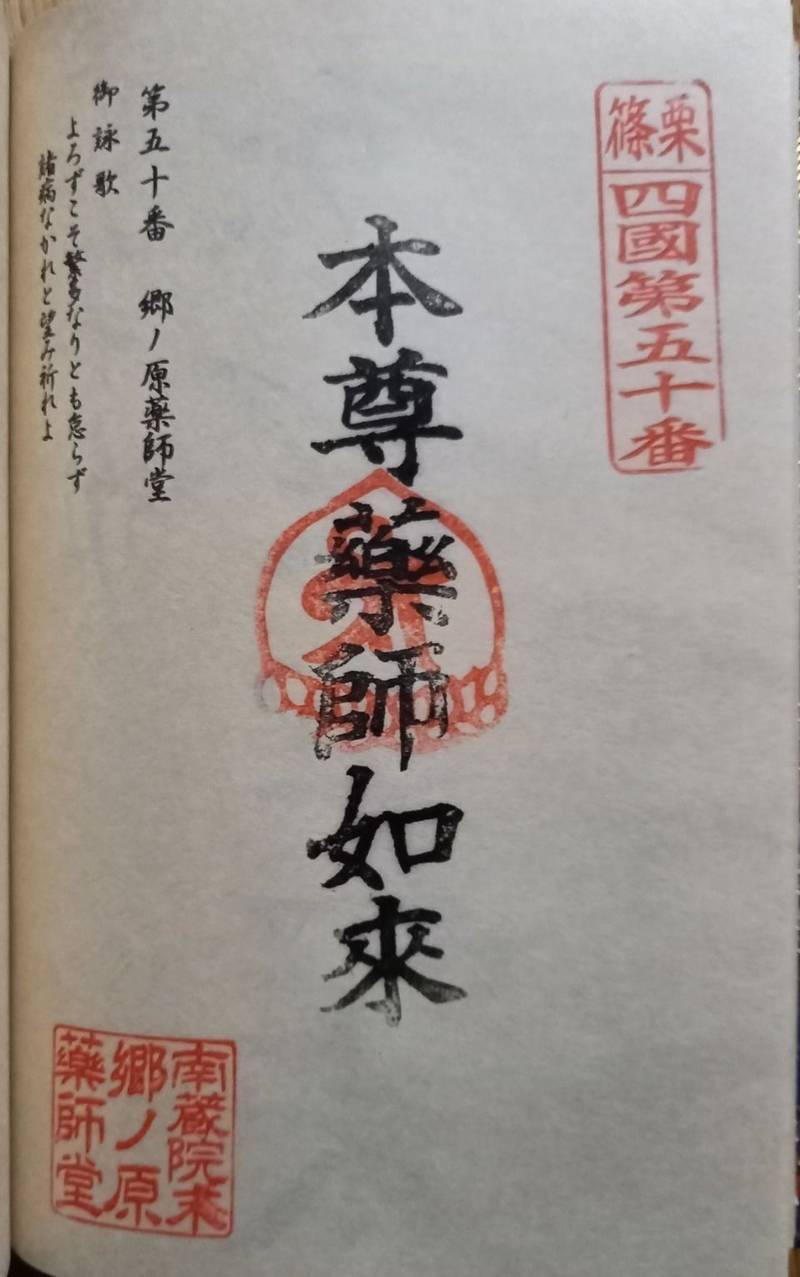 篠栗
四國第五十番
本尊藥師如來
第五十番 郷ノ原藥師堂
御詠歌
よろずこそ繁多なりとも怠らず
諸病なかれと望み祈れよ
南蔵院末
郷ノ原
藥師堂